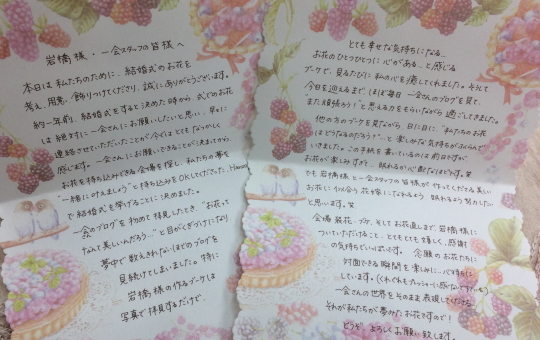 岩橋様・一会スタッフの皆様へ
本日は私たちのために、結婚式のお花を
考え、用意、飾りつけくださり、誠にありがとうございます。
約一年前、結婚式をすると決めた時から、式でのお花
は絶対に一会さんにお願いしたいと思い、早々に
連絡させていただいたことが今ではとてもなつかしく
感じます。一会さんにお願いできることが決まってから、
お花を持ち込みできる会場を探し、私たちの夢を
"一緒に叶えましょう"と持ち込みをOKしてくださった、
で結婚式を挙げることに決めました。
一会のブログを初めて拝見したとき、"お花って
なんて美しいんだろう…"と目がくぎづけになり
夢中で数えきれないほどのブログを
見続けてしまいました。特に
岩橋様の作るブーケは
写真で拝見するだけで、
とても幸せな気持ちになる…
お花のひとつひとつに心がある…と感じる
ブーケで、見るたびに私の心を癒してくれました。そして
今日を迎えるまでほぼ毎日一会さんのブログを見て、
また頑張ろう!と思える力をもらいながら過ごしてきました。
他の方のブーケを見ながら、日に日に"私たちのお花
はどうなるのだろう?"と楽しみな気持ちがふくらんで
いきました。この手紙を書いているのは前日ですが
お花が楽しみすぎて、眠れるか心配なほどです。笑
でも岩橋様と一会スタッフの皆様が作ってくださる美しい
お花に似合う花嫁になれるよう眠れるよう努力したい
と思います。笑
会場装花・ブーケ、そしてお花直しまで、岩橋様に
ついていただけること、とてもとても嬉しく、感謝
の気持ちでいっぱいです。念願のお花たちに
対面できる瞬間を楽しみに、心待ちに
しています。
一会さんの世界をそのまま表現してくださる、
それが私たちが夢みたお花ですので!
どうぞ、よろしくお願い致します。